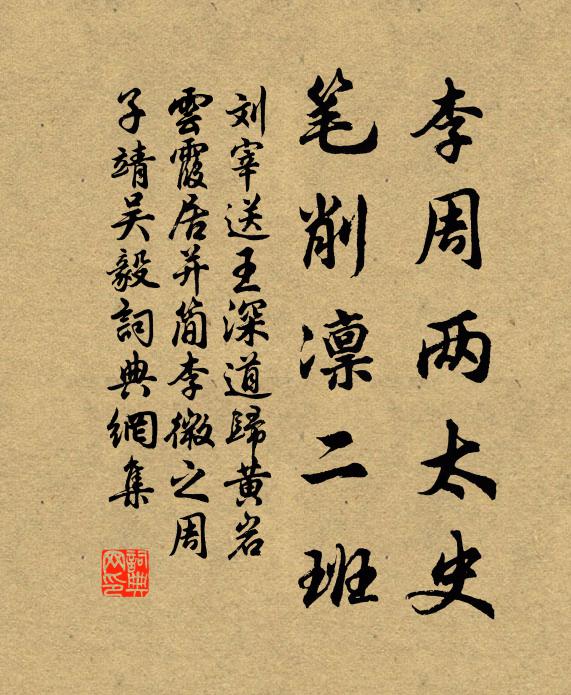 李周两太史
笔削凛二班
刘宰送王深道歸黄岩
雲霞居并简李微之周
子靖吴毅詞典網集
詞典网印